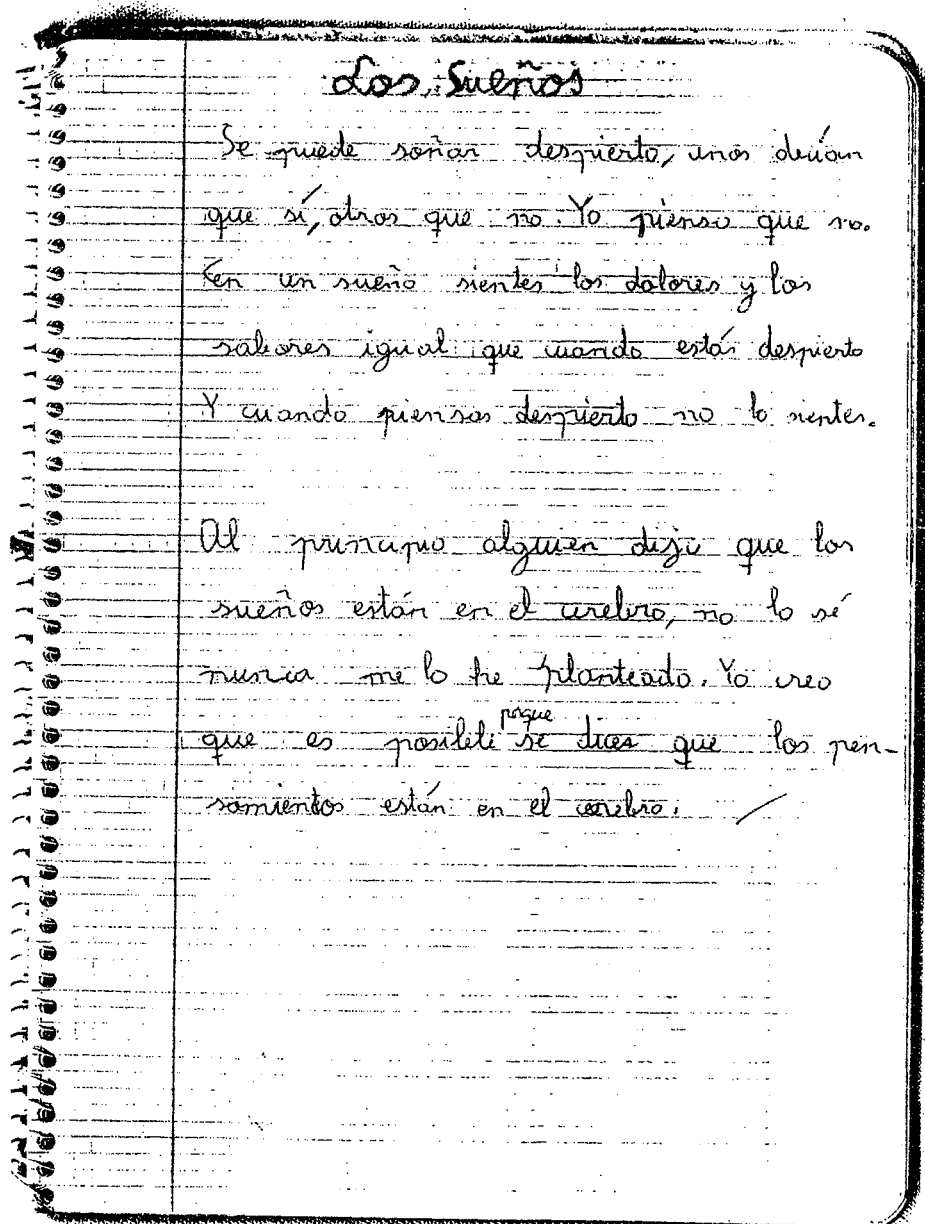 Los Sueños
Se puede soñar despierto, unos decían
que sí, otros que no. Yo pienso que no.
En un sueño sientes los dolores y los
sabores igual que cuando estás despierto
Y cuando piensas despierto no lo sientes.
Al principio alguien dijo que los
sueños están en el cerebro, no lo sé
nunca me lo he planteado. Yo creo
porque
que es posible se dices que los pen-
samientos están en el cerebro.